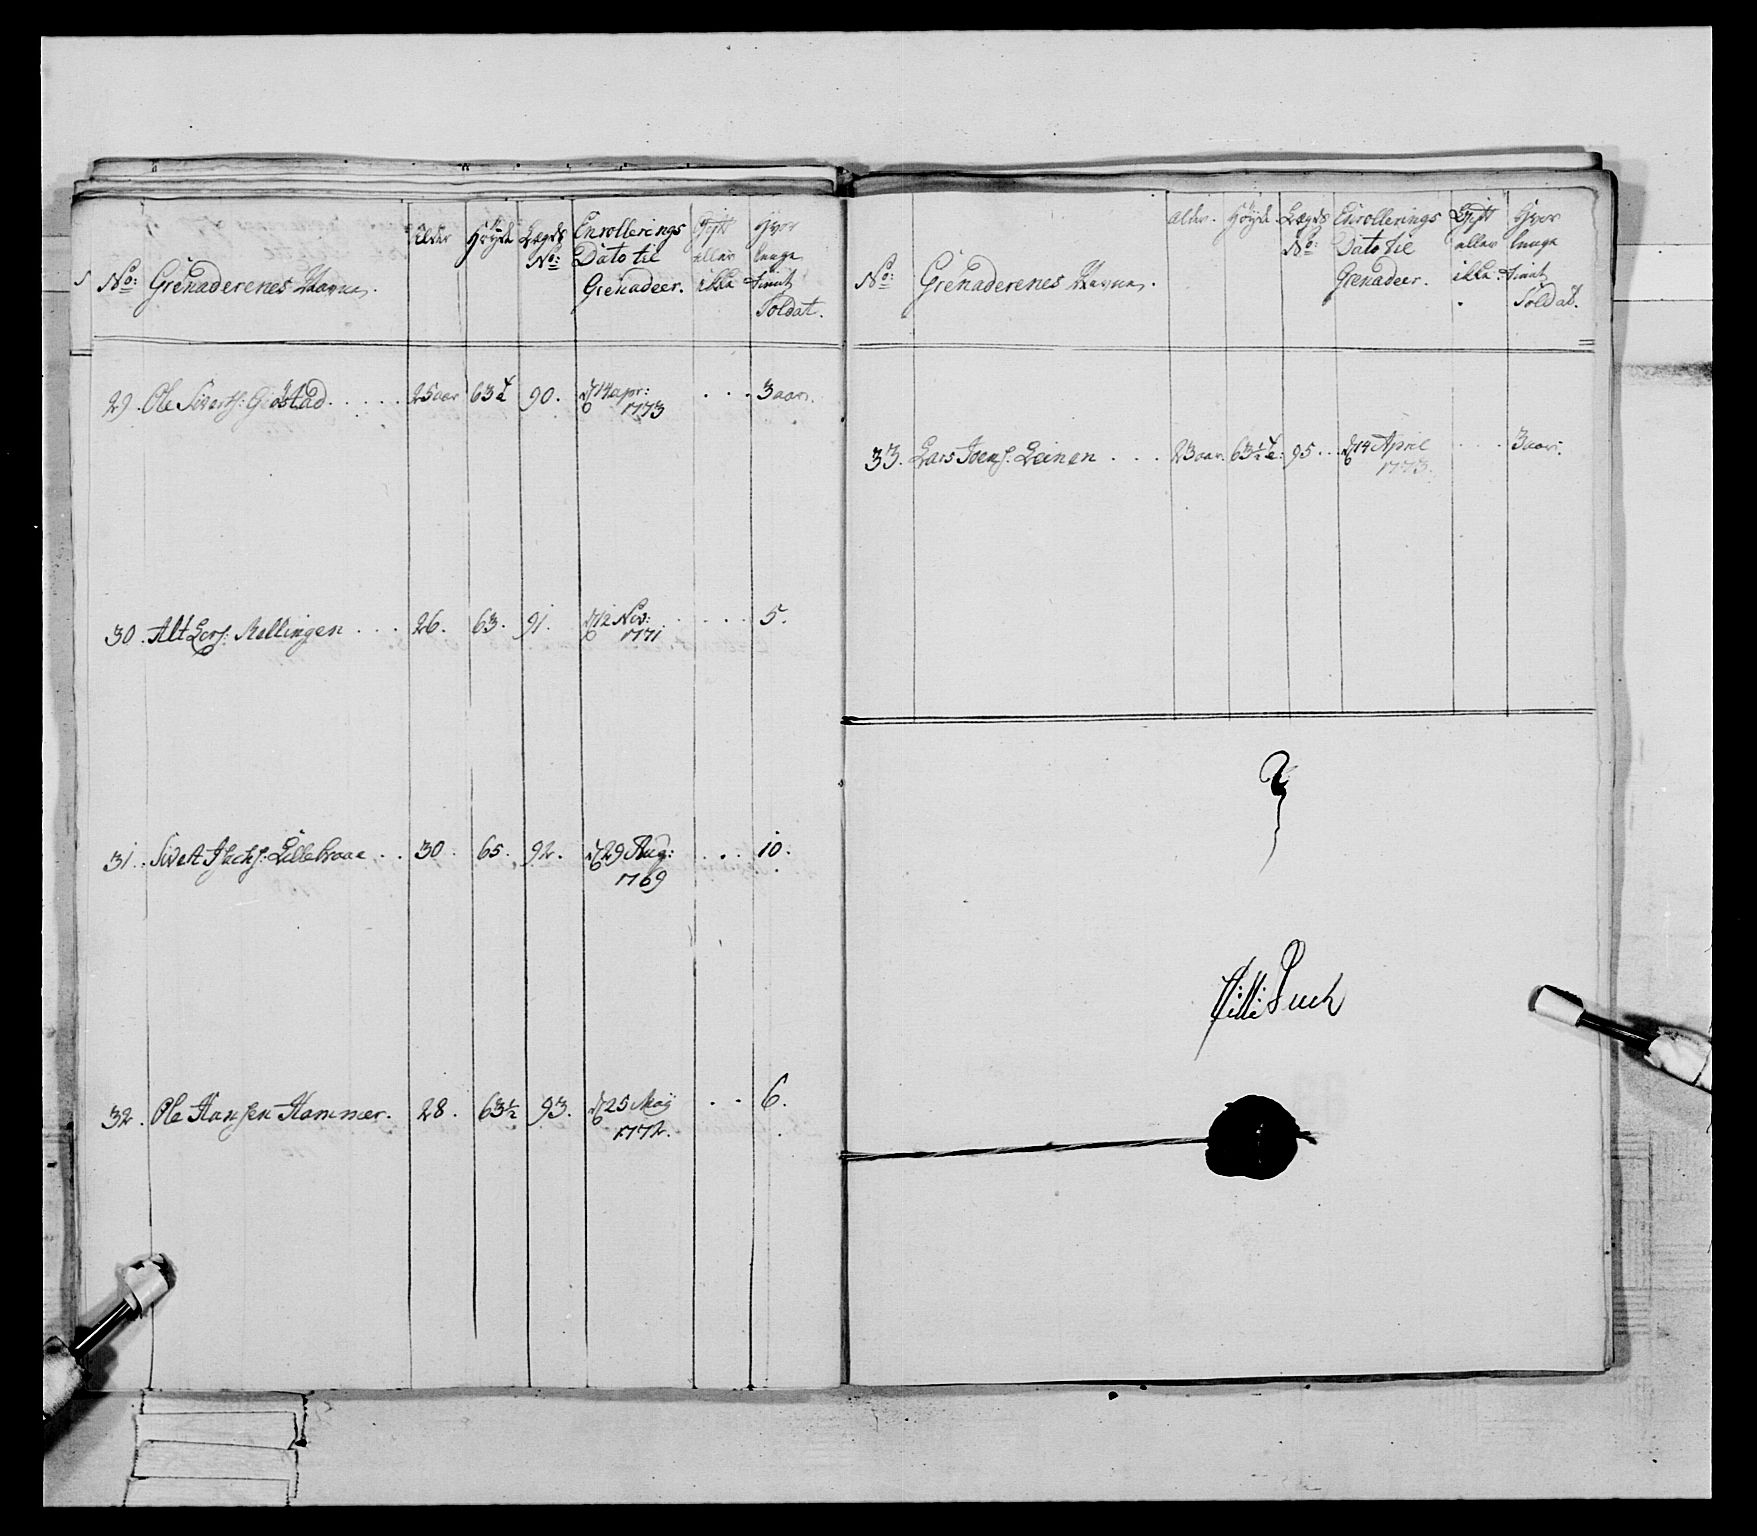 No: Grenaderenes Navne. Alder Höyde Lægds No: Enrollerings Dato til Grenadeer. Gift eller ikke Hvor længe tient Soldat.
29. Ole Siverts: Giöstad 25 aar 63 90. d 14 apr: 1773 3 aar.
30. 26. 63. 91. d 12 Nov: 1771 5.
31. 30. 65. 92. d 29 Aug: 1769 10.
32. Ole Hansen Hammer. 28. 63½ 93. d 25 Maij 1772. 6.
No: Grenaderenes Navne. Alder. Höyde Lægds No: Enrollerings Dato til Grenadeer. Gift eller ikke Hvor længe tient Soldat.
33. Lars Joens: Leinen 23 aar. 63½ 95. d 14 April 1773. 3 aar.